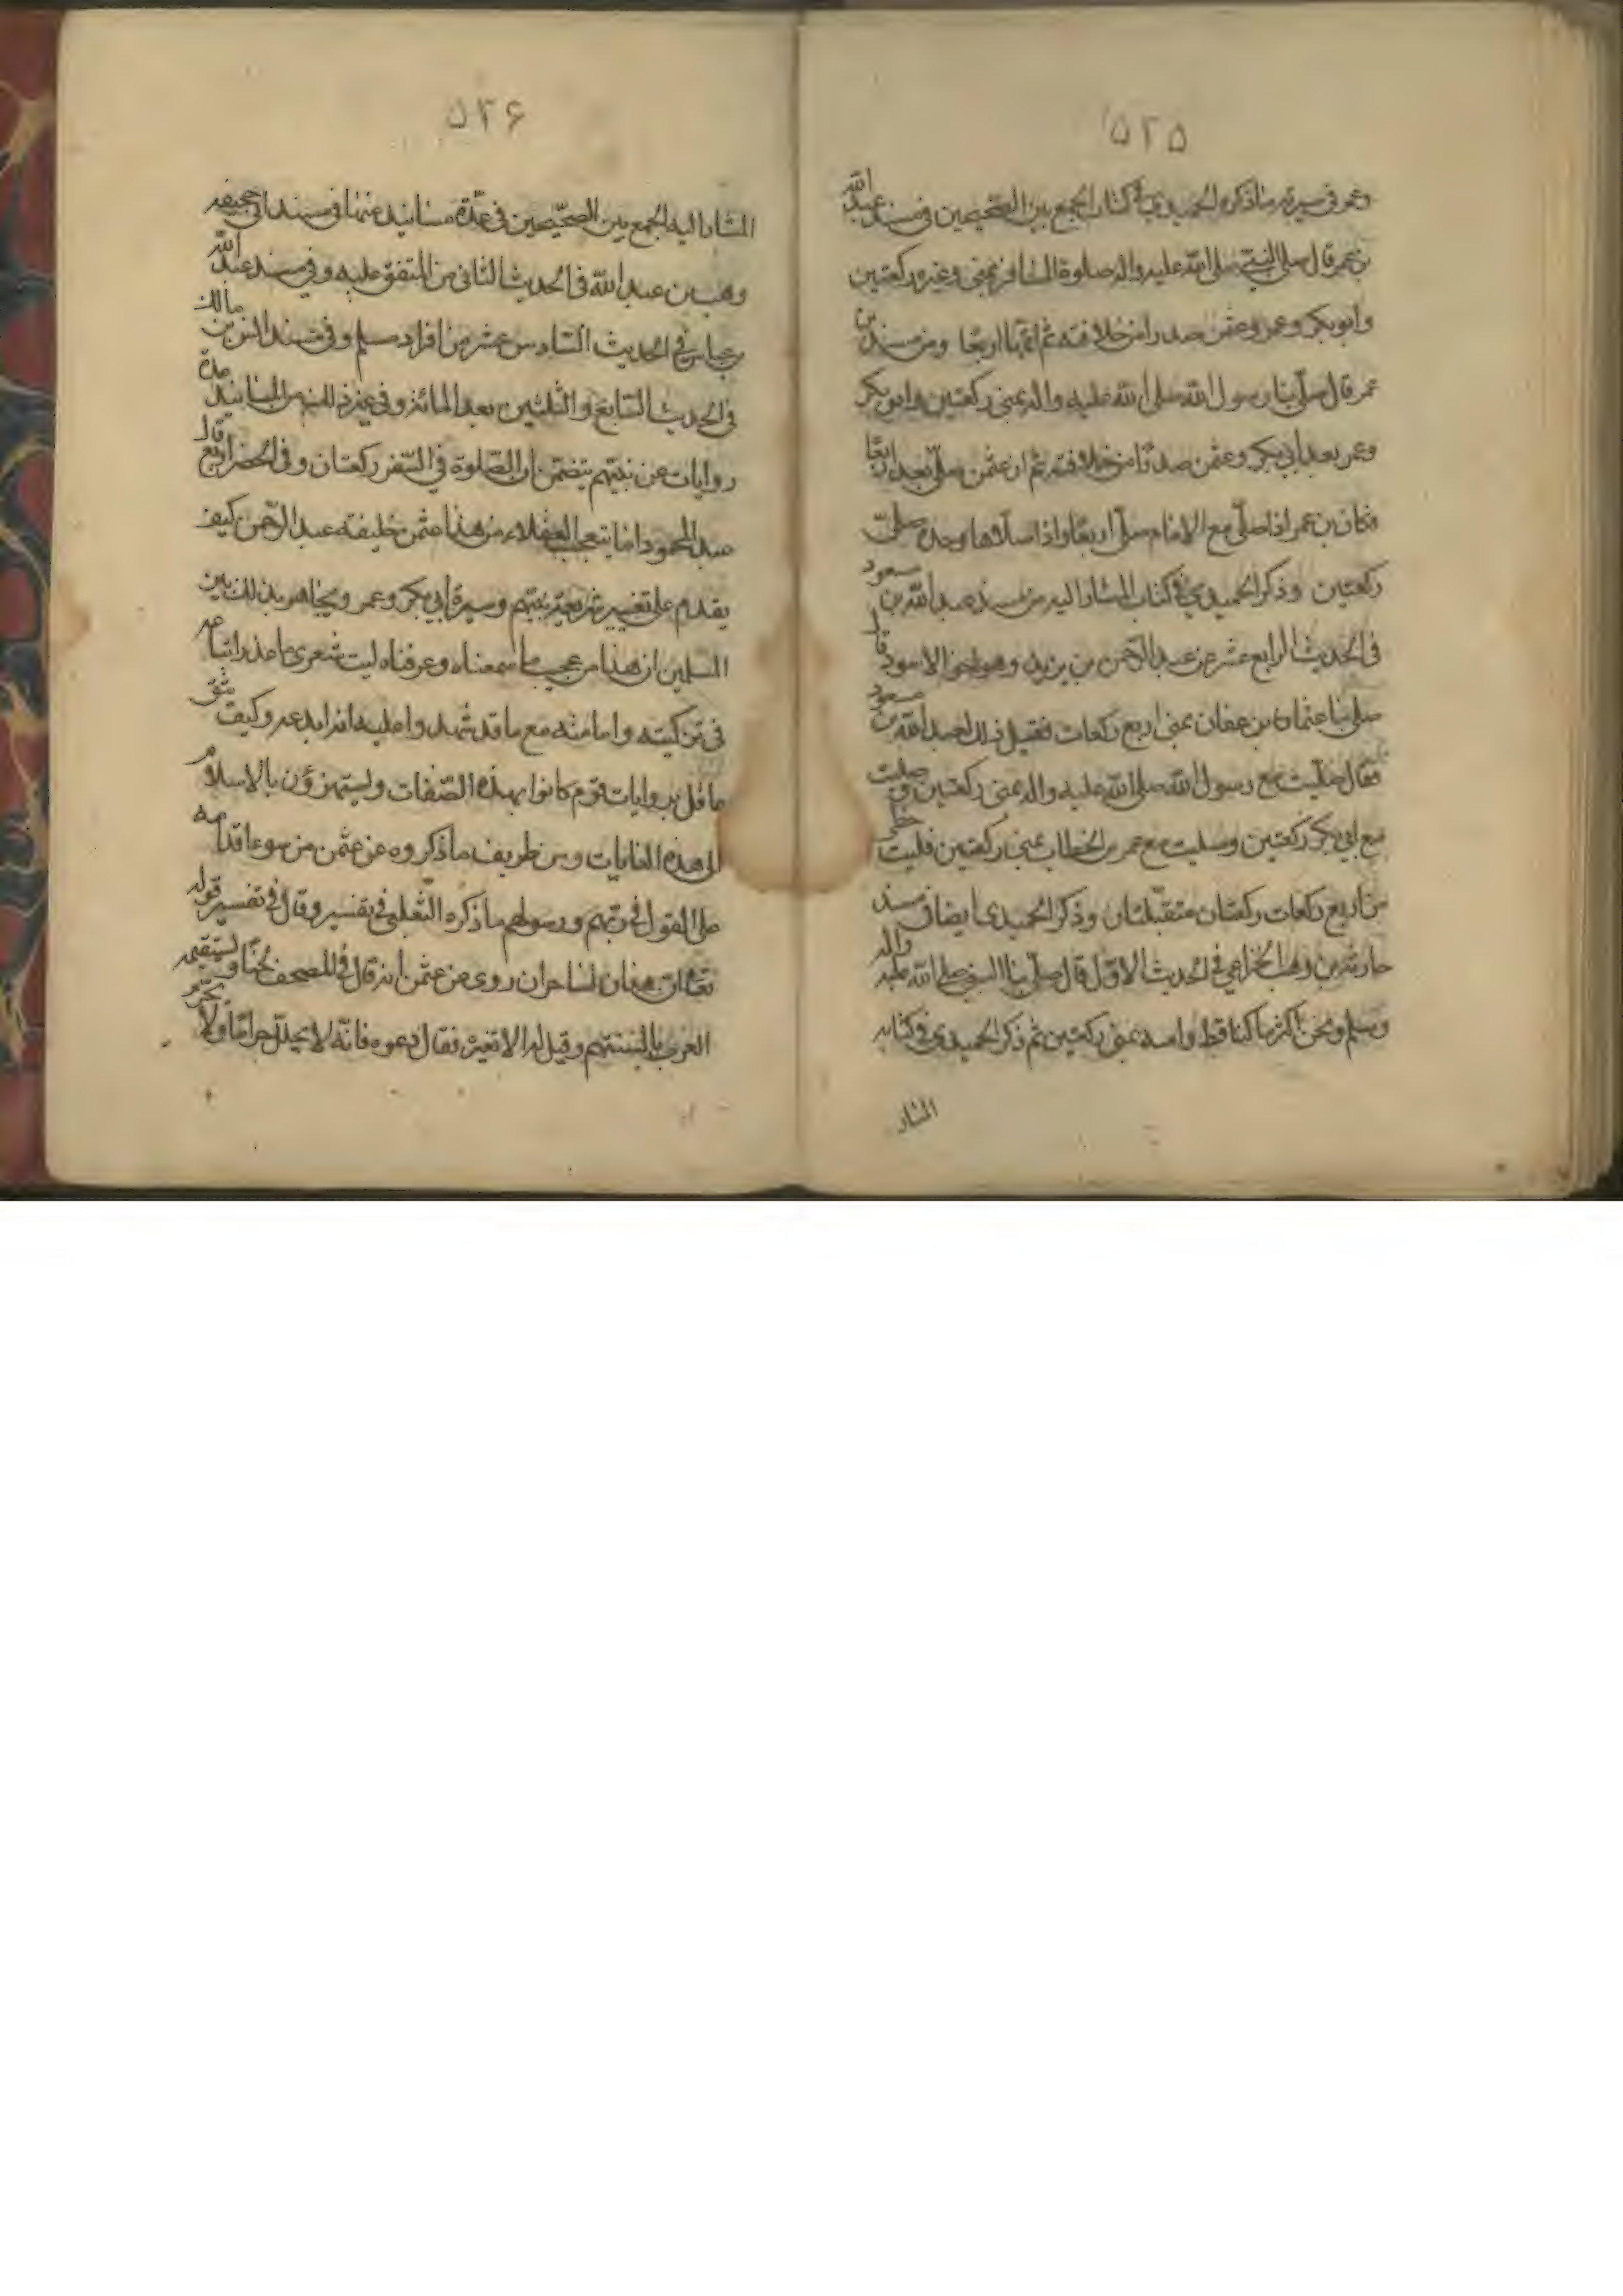 ۵۲۵
وعمر فى سيرته ما ذكره الحميدى فى كتاب الجمع بين الصحيحين فى مسند عبد الله
بن عمر قال صلى النبى صلى الله عليه واله صلوة المسافر بمنى وغيره ركعتين
وابو بكر وعمر وعثمن صدرا من خلافته ثم اتمها اربعا ومن مسند بن
عمر قال صلى بنا رسول الله صلى الله عليه واله بمنى ركعتين وابو بكر
وعمر بعد ابى بكر وعثمن صدرا من خلافته ثم ان عثمن صلى بعد اربعا
فكان بن عمر اذا صلى مع الامام صلى اربعا واذا صلاها وحده صلى
ركعتين وذكر الحميدى فى كتاب المشار اليه من مسند عبد الله بن مسعود
فى الحديث الرابع عشر عن عبد الرحمن بن يزيد وهو اخو الاسود قال
صلى بنا عثمان بن عفان بمنى اربع ركعات فقيل ذلك لعبد الله بن مسعود
فقال صليت مع رسول الله صلى الله عليه واله بمنى ركعتين وصليت
مع ابى بكر ركعتين وصليت مع عمر بن الخطاب بمنى ركعتين فليت حظى
من اربع ركعات ركعتان متقبلتان وذكر الحميدى ايضا فى مسند
حارثة بن وهب الخزاعى فى الحديث الاول قال صلى بنا النبى صلى الله عليه واله
وسلم ونحن اكثر ما كنا قط وامنه بمنى ركعتين ثم ذكر الحميدى فى كتابه
المشار
۵۲۶
المشار اليه الجمع بين الصحيحين فى عدة مسانيد منها فى مسند ابى جحيفه
وهب بن عبد الله فى الحديث الثانى من المتفق عليه وفى مسند عبد الله
بن عباس فى الحديث السادس عشر من افراد مسلم وفى مسند انس بن مالك
فى الحديث السابع والثلثين بعد المائة وفى غير ذلك من المسانيد عدة
روايات عن نبيهم يتضمن ان الصلوة فى السفر ركعتان وفى الحضر اربع قال
عبد المحمود اما يتعجب العقلاء من هذا عثمن خليفة عبد الرحمن كيف
يقدم على تغيير شريعة نبيهم وسيرة ابى بكر وعمر ويجاهر بذلك بين
المسلمين ان هذا من عجيب ما سمعناه وعرفناه ليت شعرى ما عذر اتباعه
فى تزكيته وامامته مع ما قد شهدوا عليه انه ابدعه وكيف يثق
عاقل بروايات قوم كانوا بهذه الصفات ويستهزؤن بالاسلام
الى هذه الغايات ومن طريف ما ذكروه عن عثمن من سوء اقدامه
على القول فى ربهم ورسولهم ما ذكره الثعلبى فى تفسيره قال فى تفسير قوله
تعالى ان هذان لساحران روى عن عثمن انه قال فى المصحف لحنا وستقيمه
العرب بالسنتهم وقيل له الا تغيره فقال دعوه فانه لا يحلل حراما ولا يحرم